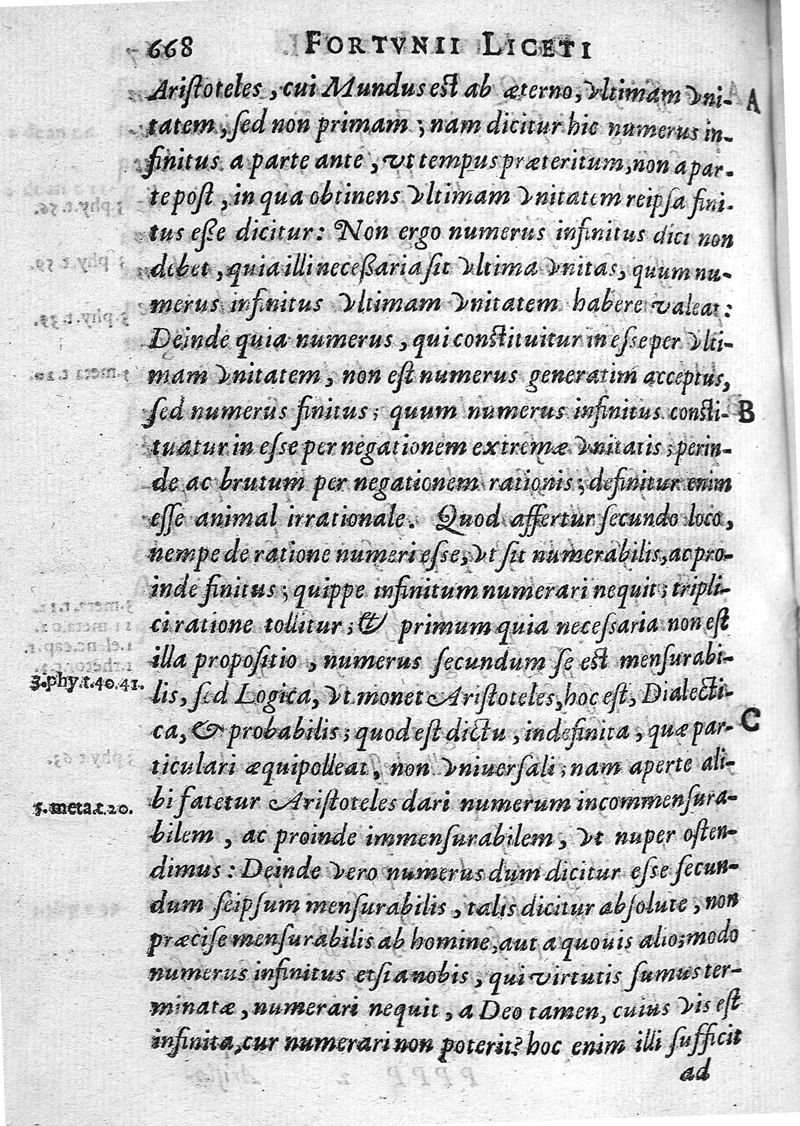 668 FORTVNII LICETI
Aristoteles, cui Mundus est ab æterno, vltimam vni- A
tatem, sed non primam; nam dicitur hic numerus in-
finitus a parte ante, vt tempus præteritum, non a par-
te post, in qua obtinens vltimam vnitatem reipsa fini-
tus esse dicitur: Non ergo numerus infinitus dici non
debet, quia illi necessaria sit vltima vnitas, quum nu-
merus infinitus vltimam vnitatem habere valeat:
Deinde quia numerus, qui constituitur in esse per vlti-
mam vnitatem, non est numerus generatim acceptus,
sed numerus finitus; quum numerus infinitus consti- B
tuatur in esse per negationem extremæ vnitatis; perin-
de ac brutum per negationem rationis; definitur enim
esse animal irrationale. Quod affertur secundo loco,
nempe de ratione numeri esse, vt sit numerabilis, ac pro-
inde finitus; quippe infinitum numerari nequit; tripli-
ci ratione tollitur; & primum quia necessaria non est
illa propositio, numerus secundum se est mensurabi-
3.phy.t.40.41. lis, sed Logica, vt monet Aristoteles, hoc est, Dialecti-
ca, & probabilis; quod est dictu, indefinita, quæ par- C
ticulari æquipolleat, non vniuersali; nam aperte ali-
5.meta.t.20. bi fatetur Aristoteles dari numerum incommensura-
bilem, ac proinde immensurabilem, vt nuper osten-
dimus: Deinde vero numerus dum dicitur esse secun-
dum seipsum mensurabilis, talis dicitur absolute, non
præcise mensurabilis ab homine, aut a quouis alio; modo
numerus infinitus etsi a nobis, qui virtutis sumus ter-
minatæ, numerari nequit, a Deo tamen, cuius vis est
infinita, cur numerari non poterit? hoc enim illi sufficit
ad